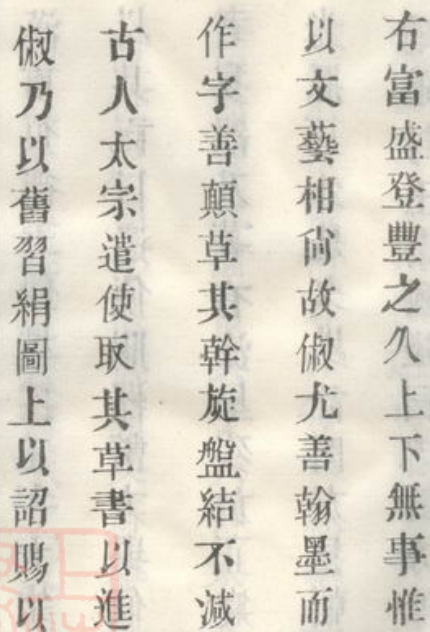 右富盛登豐之久上下無事惟
以文藝相尚故俶尤善翰墨而
作字善顛草其斡旋盤結不減
古人太宗遣使取其草書以進
俶乃以舊習絹圖上以詔賜以